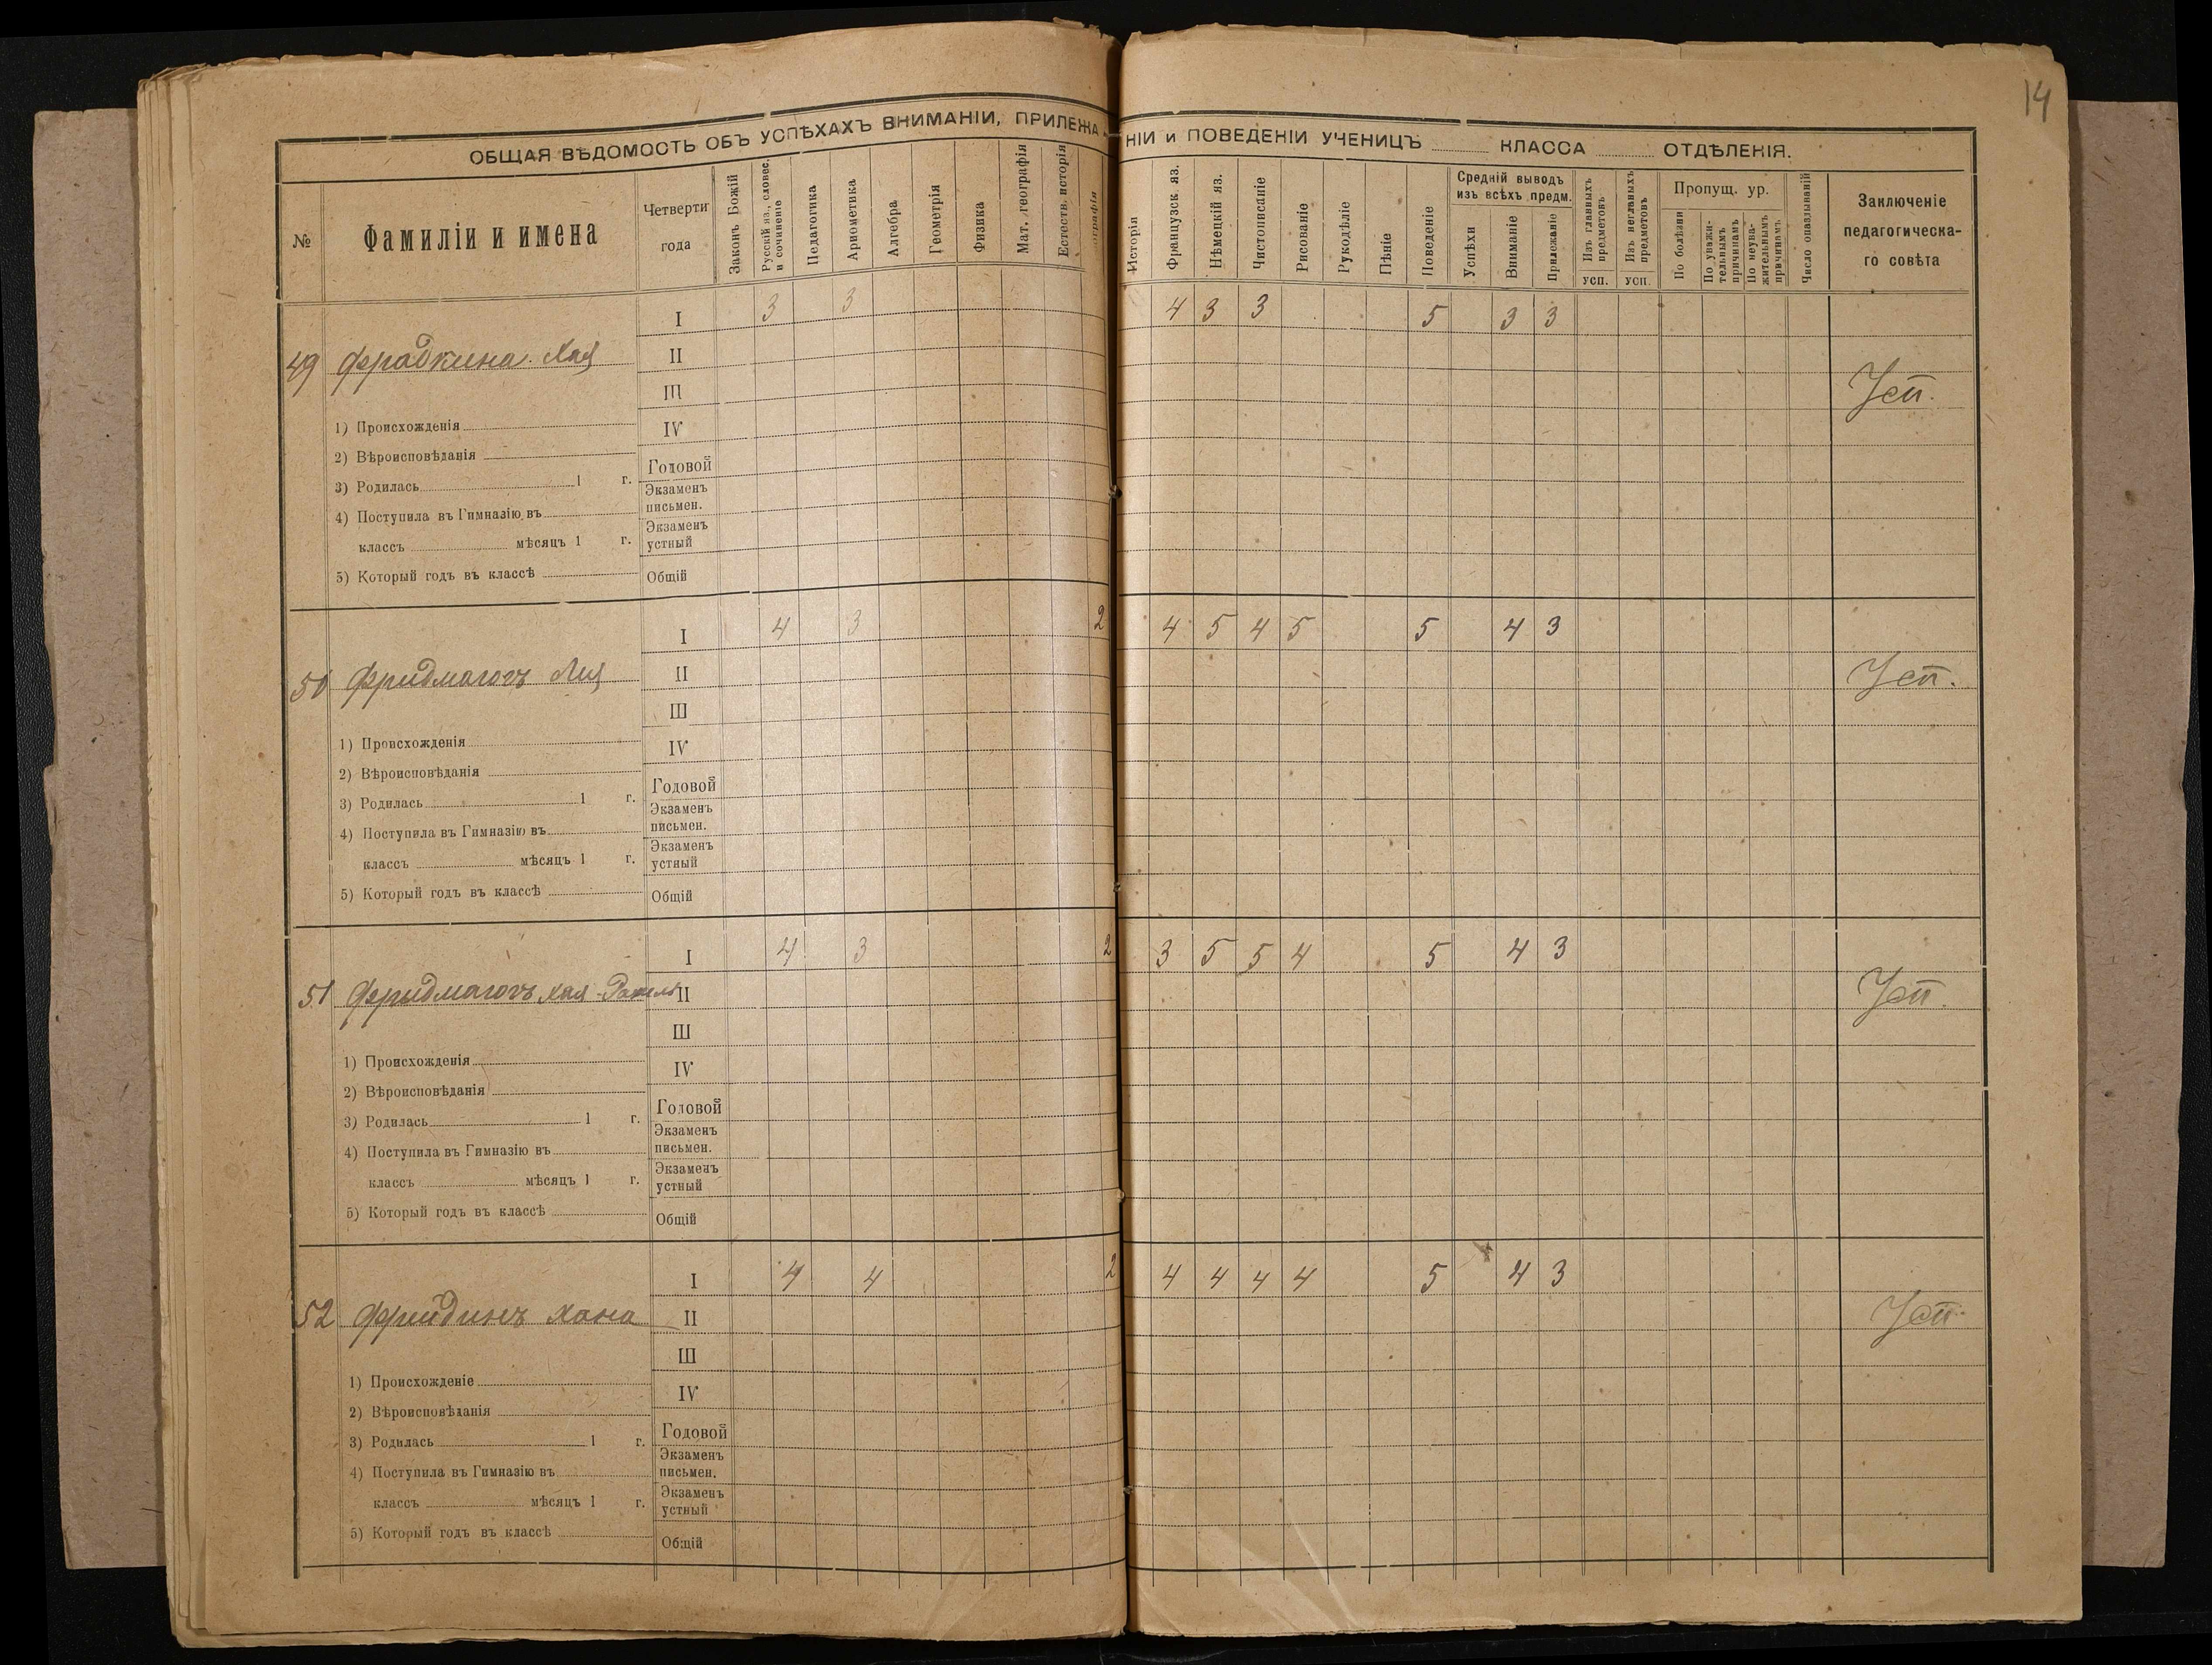 14
ОБЩАЯ ВѢДОМОСТЬ ОБЪ УСПѢХАХЪ ВНИМАНІИ, ПРИЛЕЖАНІИ и ПОВЕДЕНІИ УЧЕНИЦЪ КЛАССА ОТДѢЛЕНІЯ.
№
Фамиліи и имена
Четверти
года
Законъ Божій
Русскій яз., словес.
и сочиненіе
Педагогика
Ариѳметика
Алгебра
Геометрія
Физика
Мат. географія
Естеств. исторія
ографія
Исторія
Французск. яз.
Нѣмецкій яз.
Чистописаніе
Рисованіе
Рукодѣліе
Пѣніе
Поведеніе
Средній выводъ
изъ всѣхъ предм.
Успѣхи
Вниманіе
Прилежаніе
Изъ главныхъ
предметовъ
усп.
Изъ неглавныхъ
предметовъ
усп.
Пропущ. ур.
По болѣзни
По уважи-
тельнымъ
причинамъ
По неува-
жительнымъ
причинамъ
Число опаздываній
Заключеніе
педагогическа-
го совѣта
I 3 3 4 3 3 5 3 3
49 Фрадкина Хая II
III
Усп.
1) Происхожденія IV
2) Вѣроисповѣданія
Годовой
3) Родилась 1 г.
Экзаменъ
письмен.
4) Поступила въ Гимназію въ
Экзаменъ
устный
классъ мѣсяцъ 1 г.
5) Который годъ въ классѣ Общій
I 4 3 2 4 5 4 5 5 4 3
50 Лия II
III
Усп.
1) Происхожденія IV
2) Вѣроисповѣданія
Годовой
3) Родилась 1 г.
Экзаменъ
письмен.
4) Поступила въ Гимназію въ
Экзаменъ
устный
классъ мѣсяцъ 1 г.
5) Который годъ въ классѣ Общій
I 4 3 2 3 5 5 4 5 4 3
51 Хая II
III
Усп.
1) Происхожденія IV
2) Вѣроисповѣданія
Годовой
3) Родилась 1 г.
Экзаменъ
письмен.
4) Поступила въ Гимназію въ
Экзаменъ
устный
классъ мѣсяцъ 1 г.
5) Который годъ въ классѣ Общій
I 4 4 2 4 4 4 4 5 4 3
52 Фридинъ Хана II
III
Усп.
1) Происхожденіе IV
2) Вѣроисповѣданія
Годовой
3) Родилась 1 г.
Экзаменъ
письмен.
4) Поступила въ Гимназію въ
Экзаменъ
устный
классъ мѣсяцъ 1 г.
5) Который годъ въ классѣ Общій